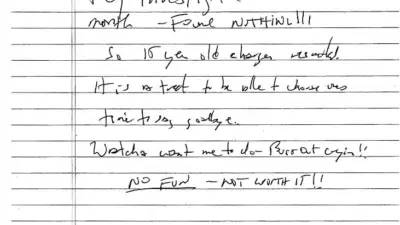 month - FOUND NOTHING!!!
So 15 year old charges resurrected.
It is a treat to be able to choose one's
time to say goodbye.
Watcha want me to do - Burst out crying!!
NO FUN - NOT WORTH IT!!